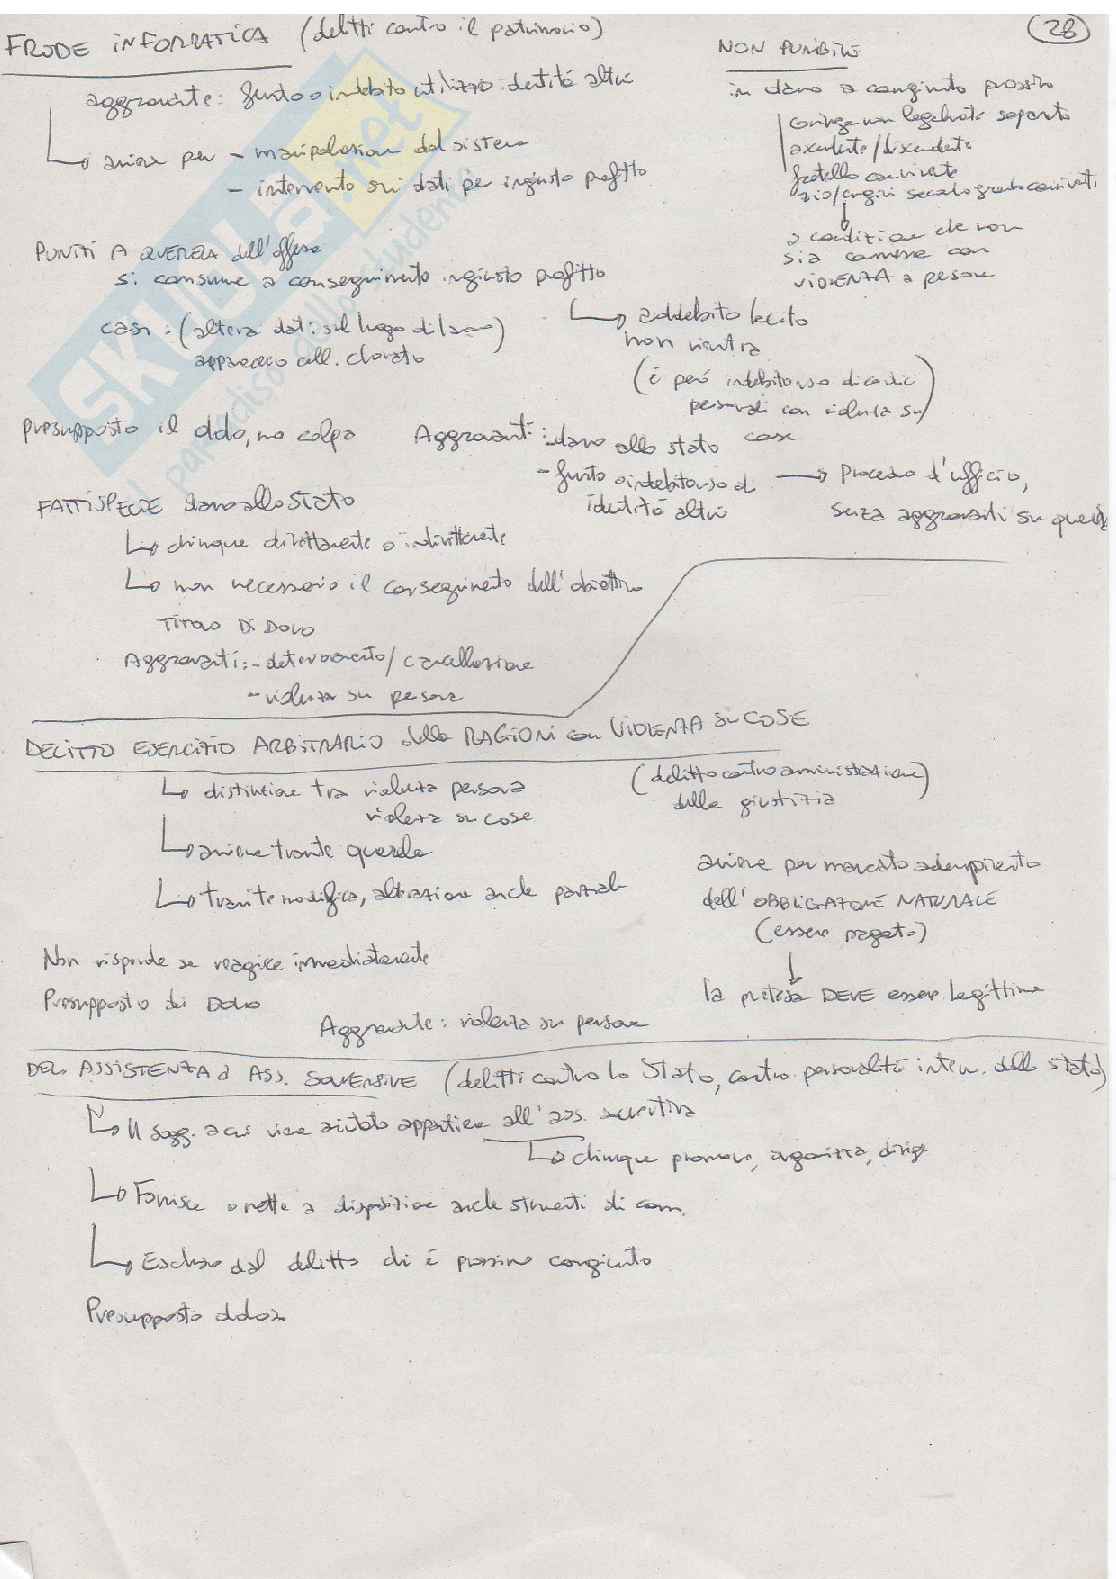 28
FRODE INFORMATICA (delitti contro il patrimonio)
aggravante: furto o indebito utilizzo identità altrui
avviene per - manipolazione del sistema
- intervento sui dati per ingiusto profitto
NON PUNIBILE
in danno a congiunto prossimo
coniuge non legalmente separato
ascendente/discendente
fratello convivente
zio/cugini secondo grado conviventi
a condizione che non
sia commesse con
VIOLENZA a persone
PUNITI A QUERELA dell'offeso
si consuma a conseguimento ingiusto profitto
casi: (altera dati sul luogo di lavoro)
apparecchio cell. clonato
addebito lecito
non rientra
(è però indebito uso di codici
personali con violenza su
cose
Presupposto il dolo, no colpa
Aggravanti: -danno allo stato
- furto o indebito uso di
identità altrui
Processo d'ufficio,
senza aggravanti su querela
FATTISPECIE danno allo Stato
chiunque direttamente o indirettamente
non necessario il conseguimento dell'obiettivo
TITOLO DI DOLO
Aggravanti: - deterioramento/cancellazione
- violenza su persona
DELITTO ESERCIZIO ARBITRARIO delle RAGIONI con VIOLENZA SU COSE
(delitto contro amministrazione)
della giustizia
distinzione tra violenza persona
violenza su cose
avviene tramite querela
tramite modifica, alterazione anche parziale
avviene per mancato adempimento
dell'OBBLIGAZIONE NATURALE
(essere pagato)
la pretesa DEVE essere legittima
Non risponde se reagisce immediatamente
Presupposto di DOLO
Aggravante: violenza su persone
DEL. ASSISTENZA a ASS. SOVVERSIVE (delitti contro lo Stato, contro personalità intern. dello Stato)
Il sogg. a cui viene aiutato appartiene all'ass. sovversiva
chiunque promuove, organizza, dirige
Fornisce o mette a disposizione anche strumenti di com.
Escluso dal delitto chi è prossimo congiunto
Presupposto